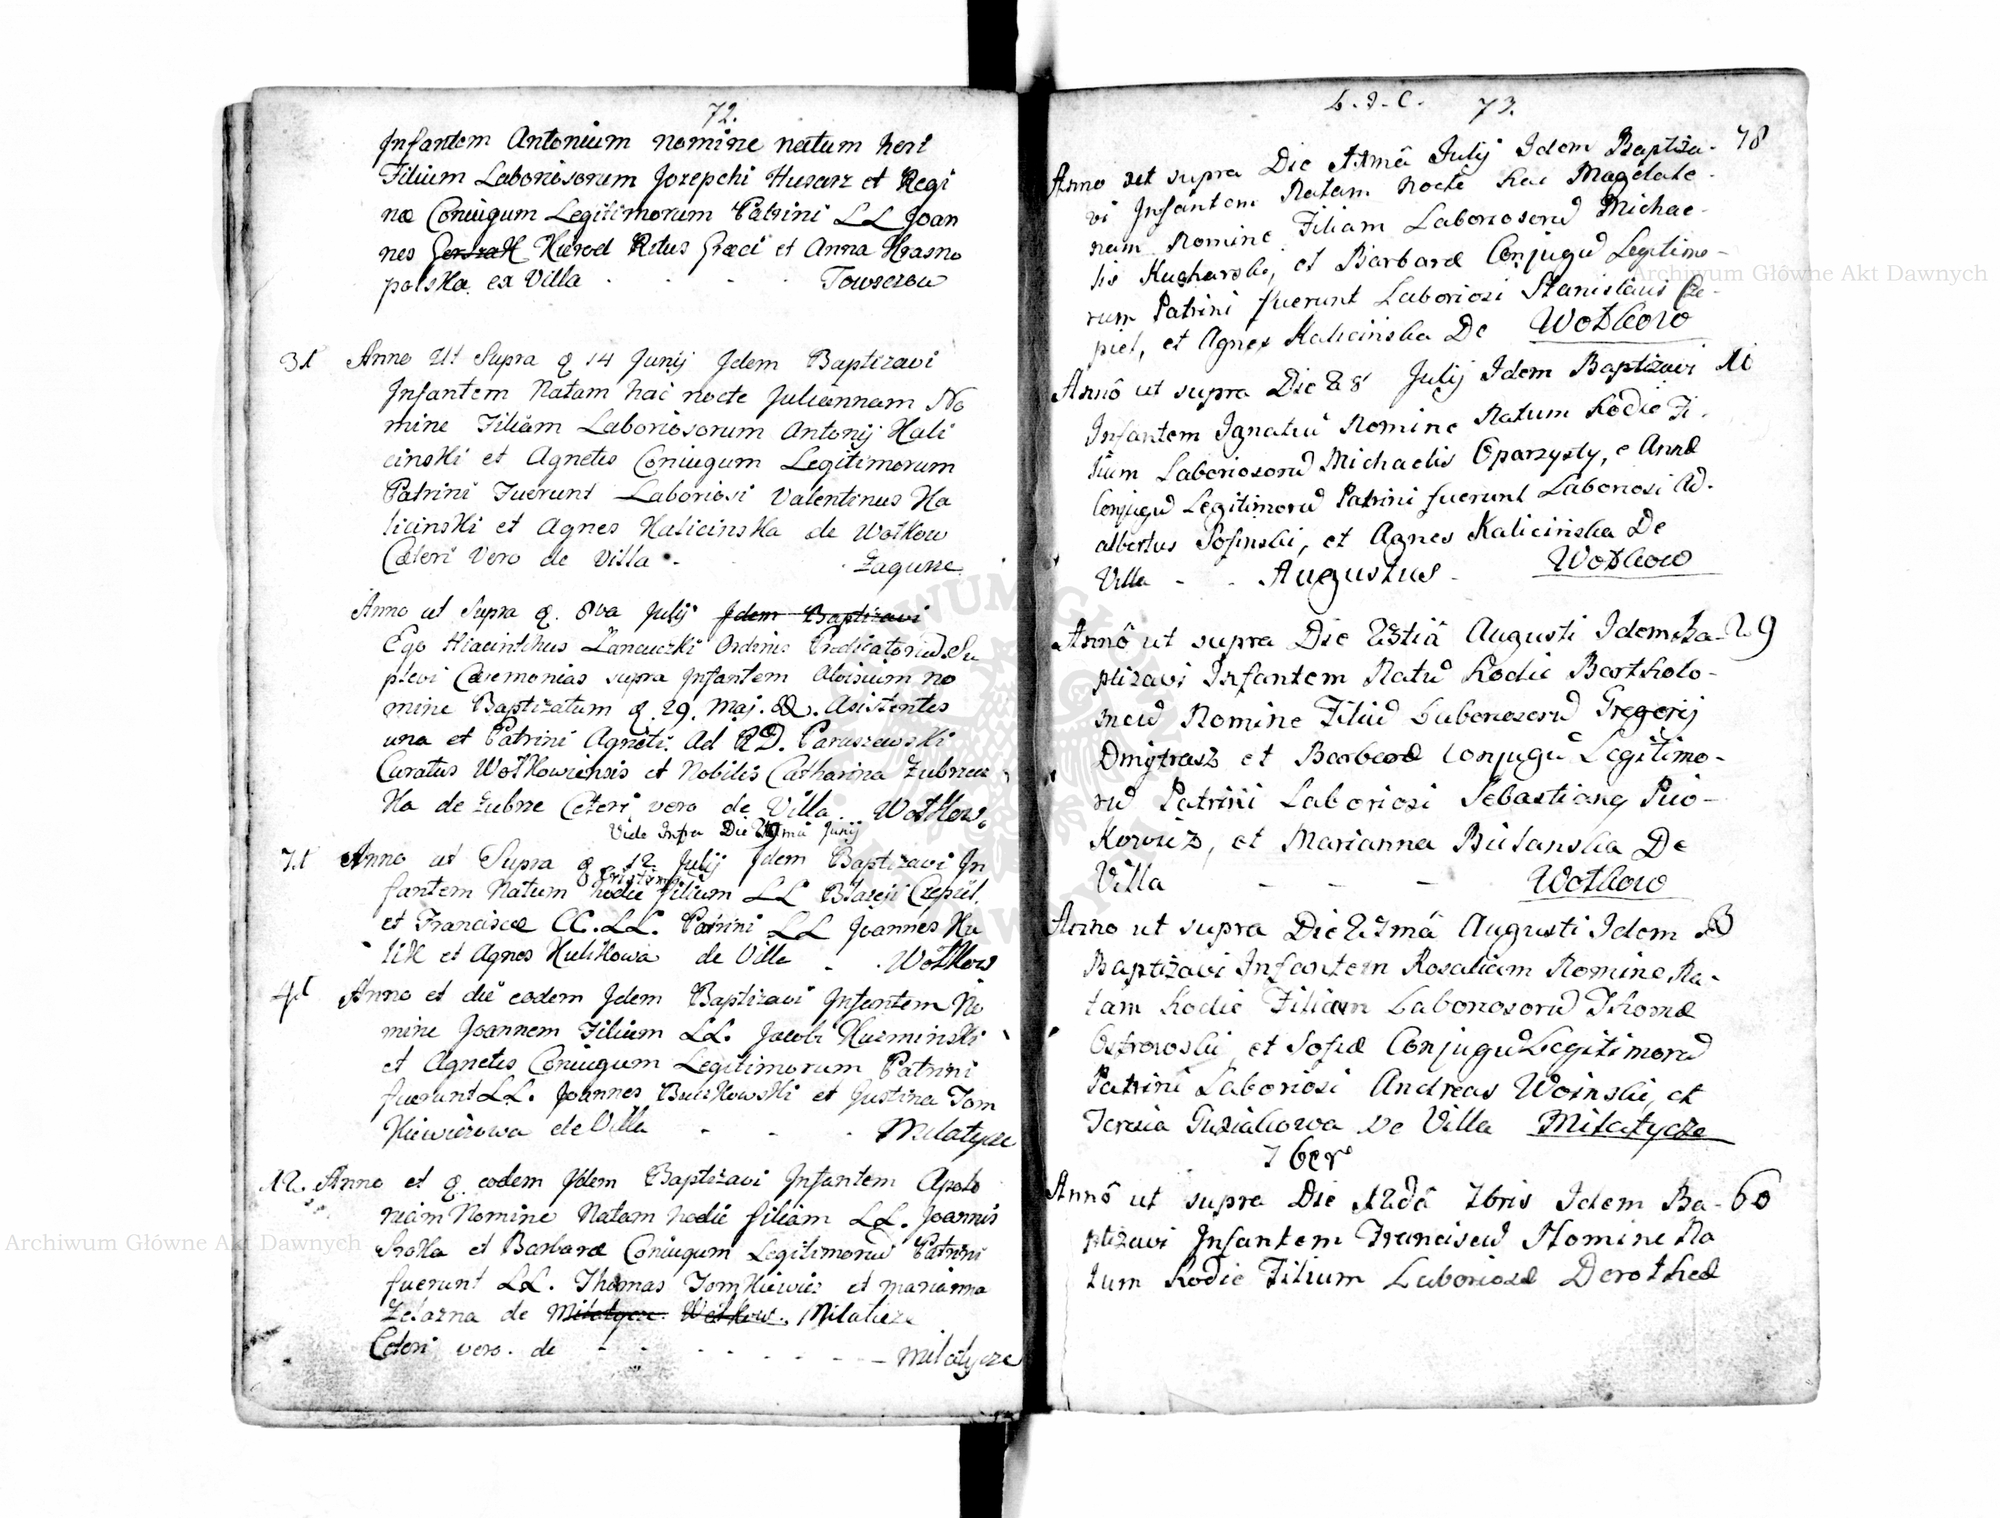 72.
Infantem Antonium nomine natum heri
Filium Laboriosorum Jozephi Husarz et Regi
næ Coniugum Legitimorum Patrini LL Joan
nes Hierod Ritus Græci et Anna Krasno
polska ex Villa - - - Towszczow
31 Anno Ut Supra d. 14 Junij Idem Baptizavi
Infantem Natam hac nocte Juliannam No
mine Filiam Laboriosorum Antonij Kali
cinski et Agnetis Coniugum Legitimorum
Patrini Fuerunt Laboriosi Valentinus Ka
licinski et Agnes Kalicinska de Wołkow
Cæteri Vero de Villa - Zagurze
Anno ut Supra d. 8va Julij Idem Baptizavi
Ego Hiacinthus Ordinis Prædicatorum Su
plevi Cæremonias supra Infantem Aloisium no
mine Baptizatum d. 29. Maj. Asistentes
una et Patrini Agniti. Ad RD. Paruszewski
Curatus Wołkowiensis et Nobilis Catharina
ka de Zubrze Ceteri vero de Villa Wołkow.
Vide Infra Die 29mâ Junij
71 Anno ut Supra d 12 Julij Idem Baptizavi In
fantem Natum hodie filium LL Błazeii Czepiel
et Franciscæ CC. LL. Patrini LL Joannes Ku
lik et Agnes Kulikowa de Villa - Wołkow
41 Anno et die eodem Idem Baptizavi Infantem No
mine Joannem Filium LL. Jacobi Kuzminski
et Agnetis Coniugum Legitimorum Patrini
fuerunt LL. Joannes Buczkowski et Justina Tom
kiewiczowa de Villa - - - Milatycze
12. Anno et d. eodem Idem Baptizavi Infantem Apolo
niam Nomine Natam hodie filiam LL. Joannis
Sroka et Barbaræ Coniugum Legitimorum Patrini
fuerunt LL. Thomas Tomkiewicz et Marianna
Żelazna de Milatycze Wołkow. Milaticze
Ceteri vero de - - - - - - Milatycze
L. J. C. 73.
Anno ut supra Die Julij Idem Baptiza- 78
vi Infantem Natam nocte hac Magdale-
nam Nomine Filiam Laboriosorũ Michae-
lis Kucharski, et Barbaræ Conjugũ Legitimo-
rum Patrini fuerunt Laboriosi Stanislaus Cze-
piel, et Agnes Kalicińska De Wołkow
Annô ut supra Die 28 Julij Idem Baptizavi
Infantem Ignatiũ Nomine Natum hodie Fi-
lium Laboriosorũ Michaelis Oparzysty, e Annæ
Conjugũ Legitimorũ Patrini fuerunt Laboriosi Ad-
albertus Sosinski, et Agnes Kalicińska De
Villa - - Wołkow
Augustus -
Annô ut supra Die Augusti Idem Ba- 29
ptizavi Infantem Natũ hodie Bartholo-
meũ Nomine Filiũ Laboriosorũ Gregorij
Dmytrasz et Barbaræ Conjugũ Legitimo-
rũ Patrini Laboriosi
et Marianna De
Villa - - - Wołkow
Anno ut supra Die 27mâ Augusti Idem
Baptizavi Infantem Rosaliam Nomine Na-
tam hodie Filiam Laboriosorũ Thomæ
Ostrowski, et Sofiæ Conjugũ Legitimorũ
Patrini Laboriosi Andreas Woinski, et
Teresia Guziakowa De Villa Milatycze
7ber
Annô ut supra Die 7bris Idem Ba- 60
ptizavi Infantem Franciscũ Nomine Na
tum hodie Filium Laboriosæ Dorotheæ
Archiwum Główne Akt Dawnych
Archiwum Główne Akt Dawnych